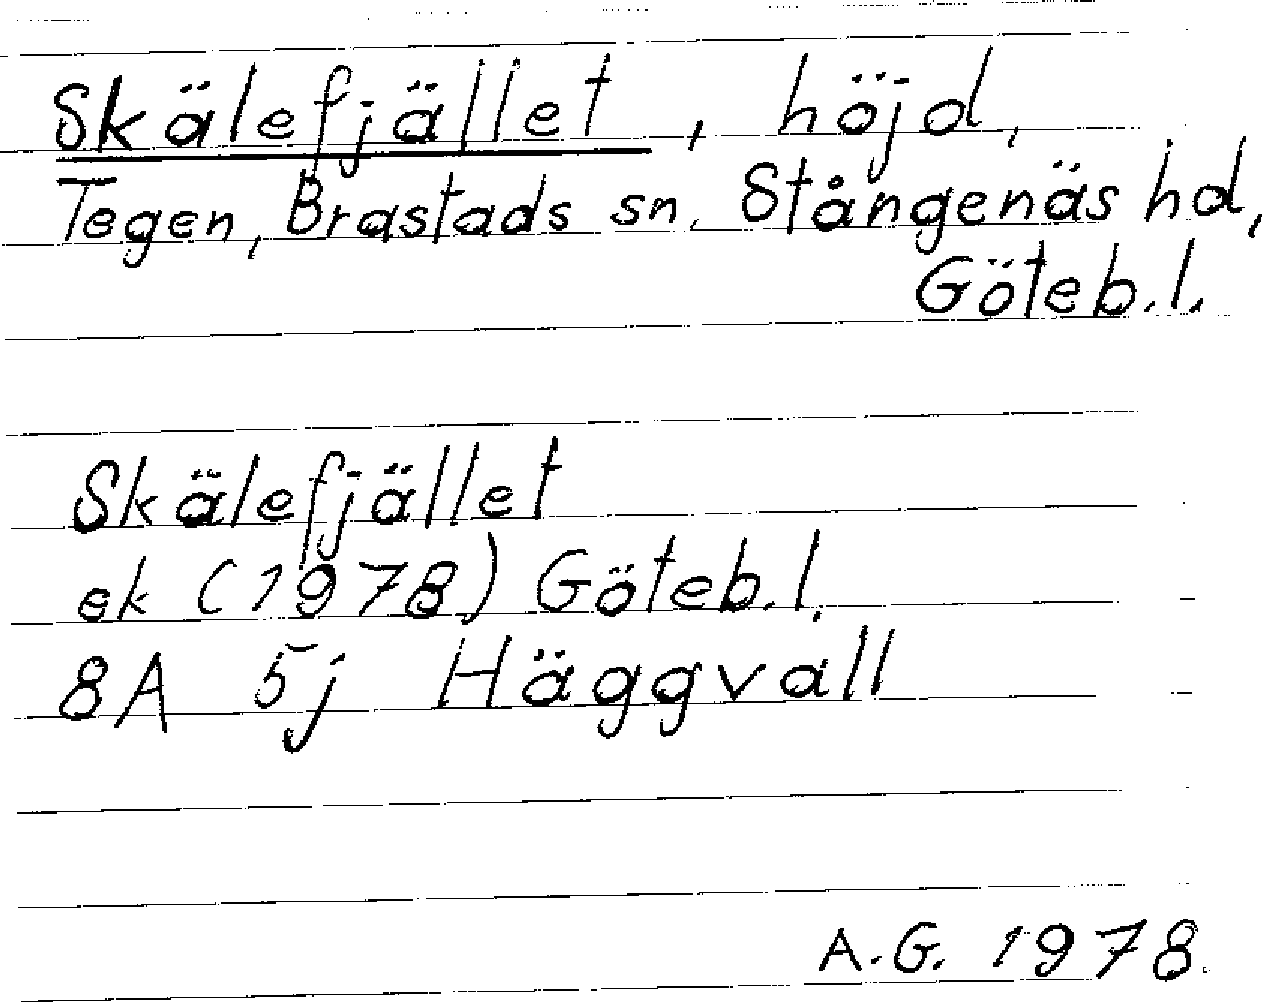 Skälefjället, höjd,
Tegen, Brastads sn. Stångenäs hd,
Göteb.l.
Skälefjället
ek (1978) Göteb.l.
8A 5j Häggvall
A.G. 1978.